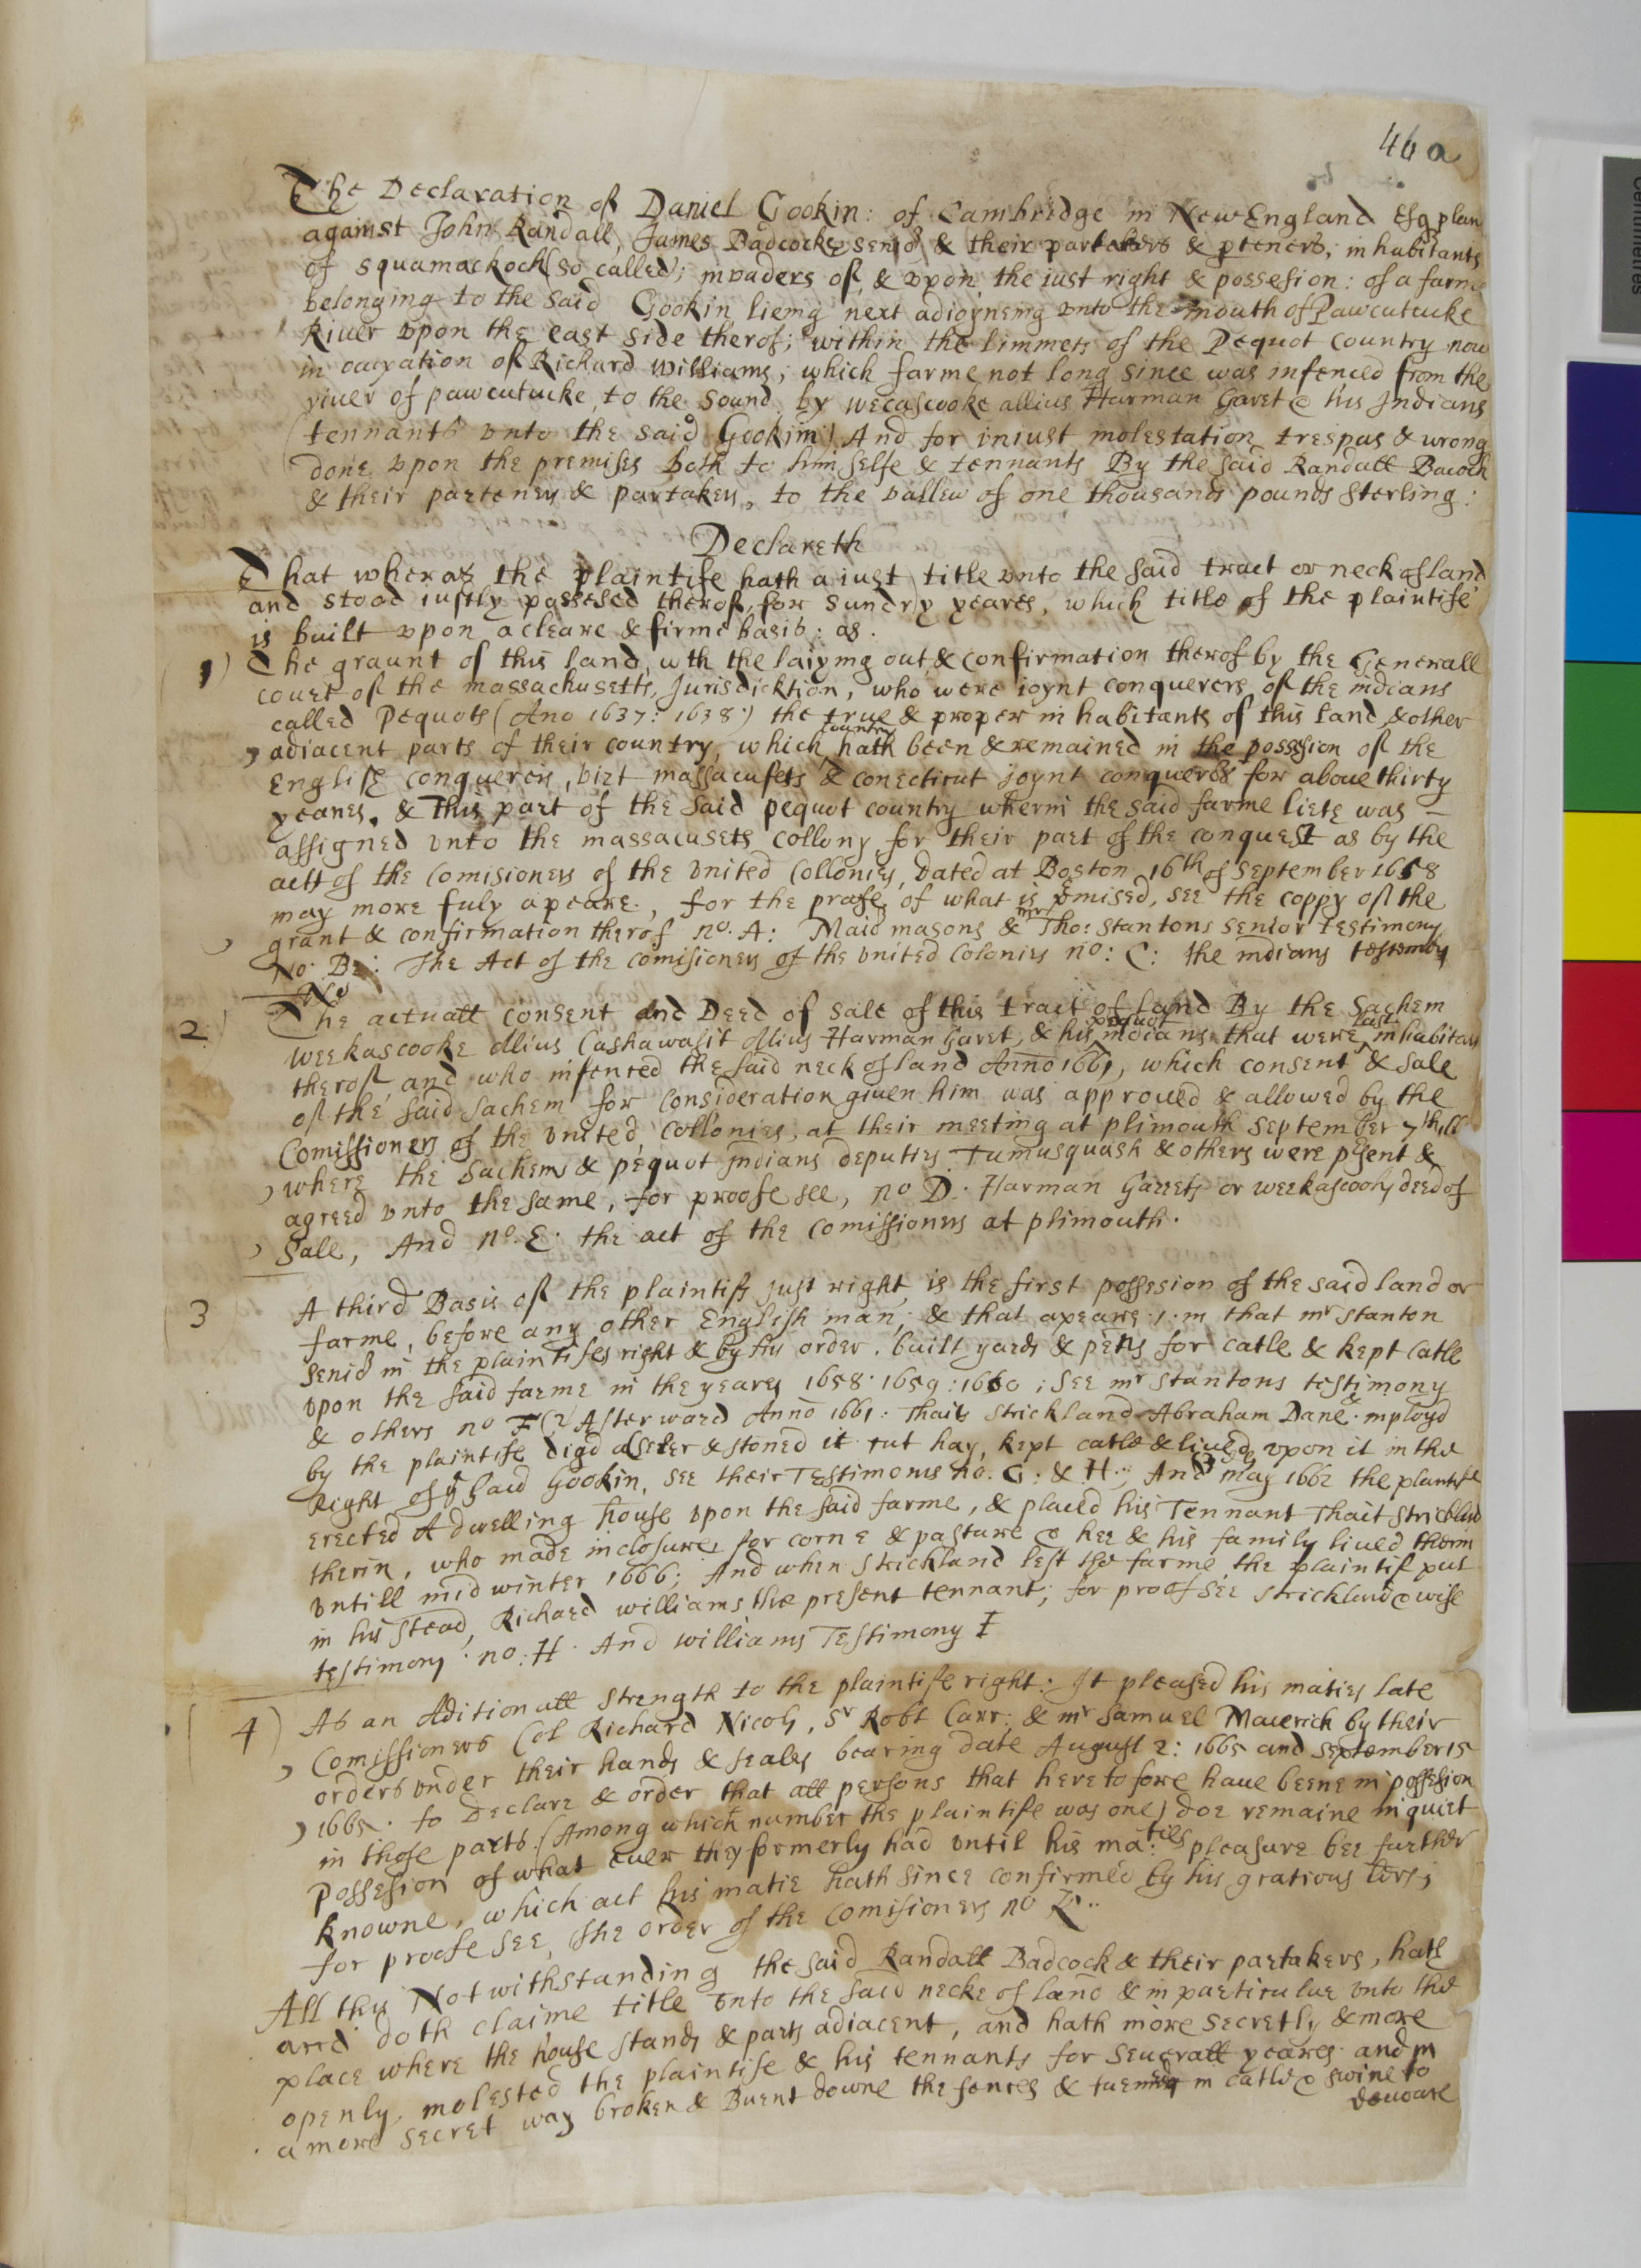 46 a
The Declaration of Daniel Gookin: of Cambridge in New England Esq plan
against John Randall, James Badcocke senior & their partakers & pteners, inhabitants
of Squamackock (so called); invaders of, & vpon the iust right & possesion: of a farme
belonging to the said Gookin lieing next adioyneing vnto the mouth of Pawcutucke
River vpon the east side therof; within the limmets of the Pequot Country now
in ocupation of Richard Williams; which farme not long since was infenced from the
riuer of pawcutucke, to the sound, by wecascooke allius Harman Garet & his Indians
(tennants vnto the said Gookin) And for iniust molestation trespas & wrong
done vpon the premises both to himselfe & tennants By the said Randall Bacock
& their parteners & partakers, to the vallew of one thousand pounds sterling:
Declareth
That wheras the plaintife hath a iust title vnto the said tract or neck of land
and stood iustly possesed therof, for sundry yeares, which title of the plaintife
is built vpon a cleare & firme basis: as.
1) The graunt of this land, wth the laiyng out & confirmation therof by the Generall
court of the massachusetts, Jurisdicktion, who were ioynt conquerers of the indians
called Pequots (Ano 1637: 1638:) the true & proper inhabitants of this land & other
adiacent parts of their country, which country hath been & remained in the possesion of the
English conquerers, vizt massacusets & conecticut joynt conquerors for aboue thirty
yeares. & This part of the said pequot country wherin the said farme liete was
assigned vnto the massacusets collony, for their part of the conquest as by the
acts of the Comisioners of the vnited Collonies, Dated at Boston 16th of September 1658
may more fuly apeare., for the profe of what is pmised, see the coppy of the
grant & confirmation therof no. A: Maio masons & mr Tho: Stantons senior testimony
No. Be: The Act of the comisioners of the vnited Colonies no: C: the indians testemony
No
2) The actuall consent and Deed of sale of this tract of land By the Sachem
weekascooke allius Cashawasit allius Harman Garet, & his pequot indians that were last inhabitans
therof and who infenced the said neck of land Anno 1661, which consent & sale
of the said Sachem for consideration giuen him was approued & allowed by the
Comissioners of the vnited Collonies, at their meeting at plimouth September 7th,
where the Sachems & pequot indians deputies Tumusquash & others were psent &
agreed vnto the same, for proofe see, no D. Harman Garrets or weekascooks deed of
Sale, And no. E. the act of the comissioners at plimouth.
3 A third Basis of the plaintifs just right, is the first possesion of the said land or
farme, before any other English man; & that apeare: 1. in that mr Stanton
Senior in the plaintifes right & by his order, built yards & pens for catle & kept catle
vpon the said farme in the yeares 1658: 1659: 1660; See mr Stantons testimony
& others no F (2 Afterward Anno 1661: Thaits Strickland & Abraham Dane. mployd
by the plaintife digd a seler & stoned it cut hay, kept catle & liued, vpon it in the
Right of ye said Gookin, see their Testimonis no. G: & H.; And (3 ly may 1662 the plantife
erected A dwelling house vpon the said farme, & placed his Tennant Thait Strickland
therin, who made inclosures for corne & pasture & hee & his family liued therin
vntill midwinter 1666; And when Strickland left the farme, the plaintif put
in his stead, Richard williams the present tennant; for proof see strickland & wife
testimony. no: H. And williams Testimony I
4) As an Aditionall strength to the plaintife right: It pleased his maties late
Comissioners Col Richard Nicols, Sr Robt Carr: & mr Samuel Maverick by their
orders vnder their hands & seales bearing date August 2: 1665 and September 15
1665. to Declare & order that all persons that heretofore haue beene in possesion
in those parts (Among which number the plaintife was one) doe remaine in quiet
possesion of what euer they formerly had vntil his ma:ties pleasure bee further
knowne, which act his matie hath since confirmed by his gratious lers;
for proofe see, the order of the comisioners no K..
All this Notwithstanding the said Randall Badcock & their partakers, hath
and doth claime title vnto the said necke of land & in particular vnto the
place where the house stands & parts adiacent, and hath more secretly & more
openly, molested the plaintife & his tennants for seuerall yeares. and in
a more secret way broken & Burnt downe the fences & turned in catle & swine to
devoure